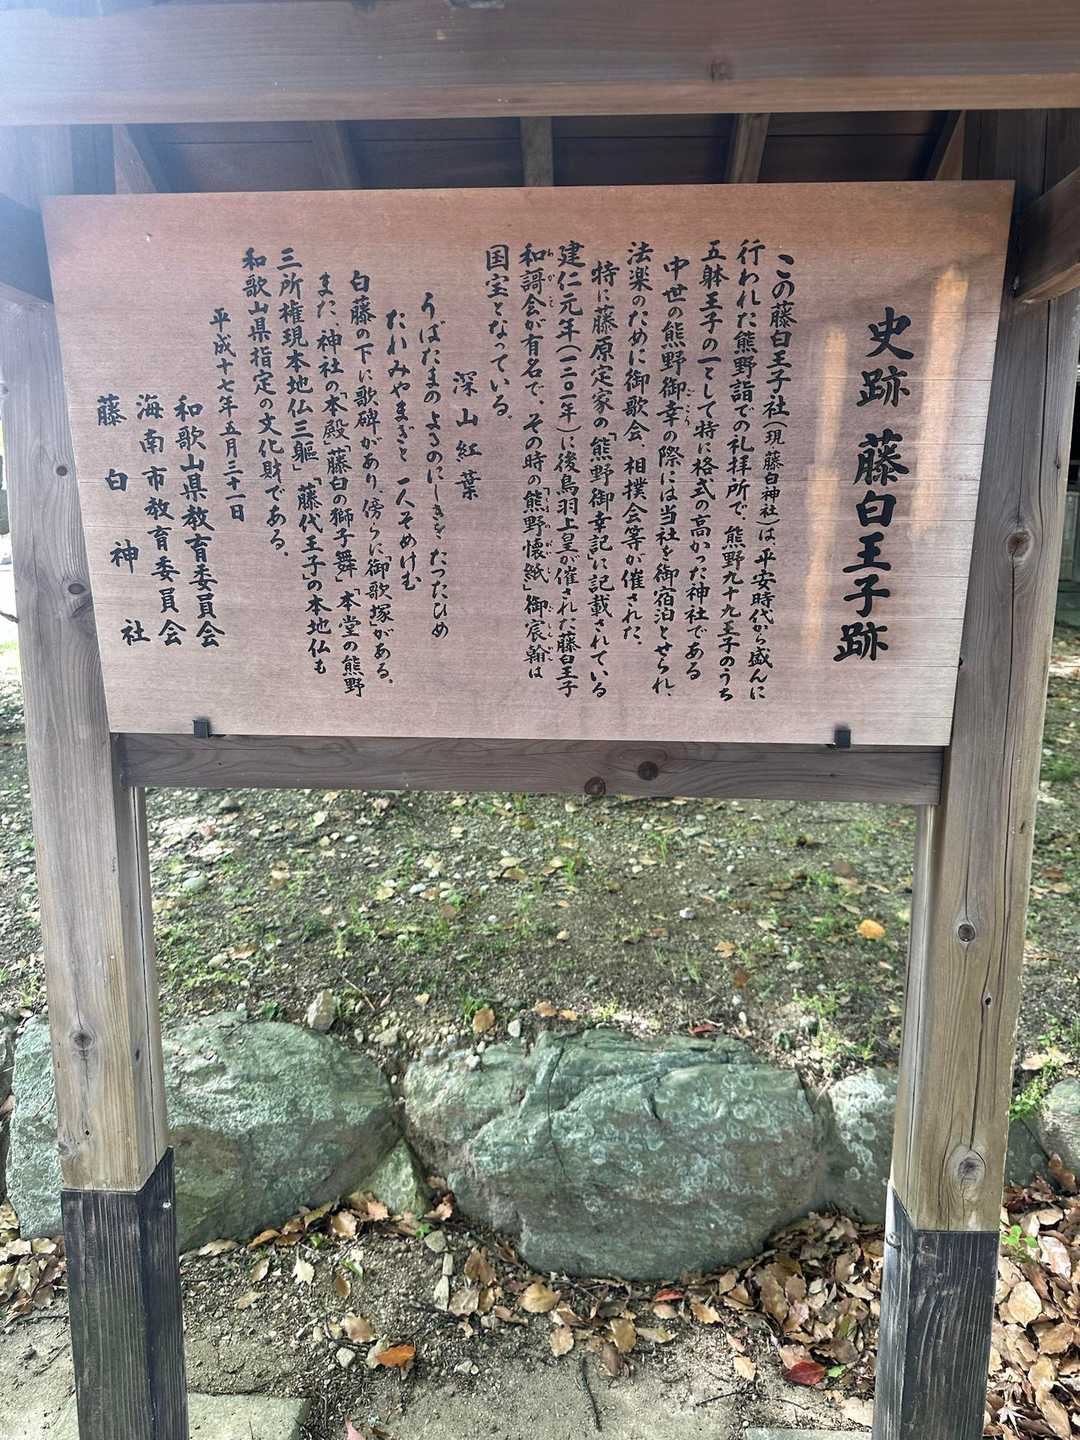 史跡 藤白王子跡
この藤白王子社(現 藤白神社)は、平安時代から盛んに
行われた熊野詣での礼拝所で、熊野九十九王子のうち
五躰王子の一として特に格式の高かった神社である
中世の熊野御幸の際には当社を御宿泊とせられ、
ごこう
法楽のために御歌会、相撲会等が催された、
特に藤原定家の「熊野御幸記」に記載されている
建仁元年(一二〇一年)に後鳥羽上皇が催された藤白王子
和謌会が有名で、その時の「熊野懐紙」御宸翰は
国宝となっている。
深山紅葉
うばたまのよるのにしきをたつたひめ
たれみやまぎと一人そめけむ
白藤の下に歌碑があり、傍らに「御歌塚」がある。
また、神社の「本殿」「藤白の獅子舞」「本堂の熊野
三所権現本地仏三軀」「藤代王子」の本地仏も
和歌山県指定の文化財である。
平成十七年五月三十一日
和歌山県教育委員会
海南市教育委員会
藤白神社